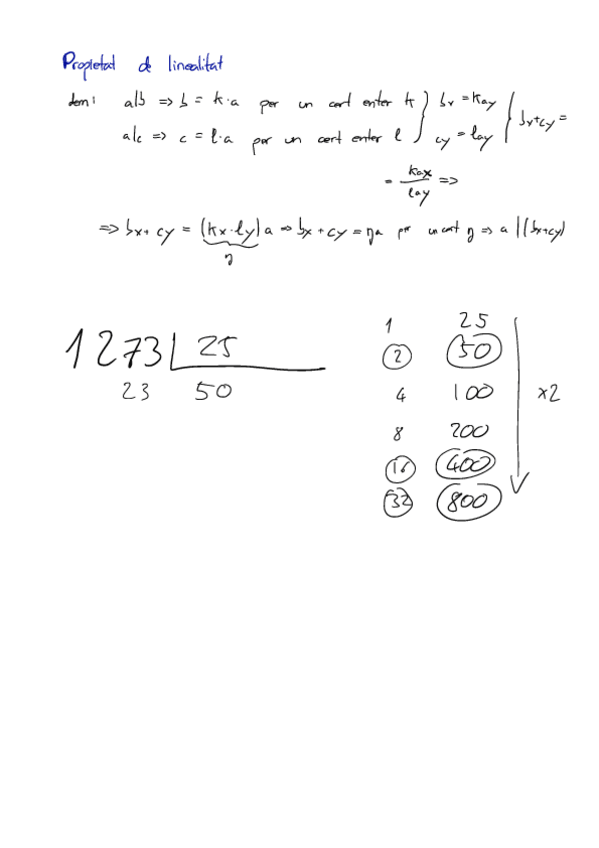 Propietat de linealitat
dem: a|b => b = k·a per un cert enter k } bx = kay } bx+cy =
a|c => c = l·a per un cert enter l } cy = lay
= kax / lay =>
=> bx + cy = (kx·ly)a => bx + cy = ηa per un cert η => a|(bx+cy)
η
1273 | 25
23 50
1 25
2 50
4 100
8 200
16 400
32 800
x2